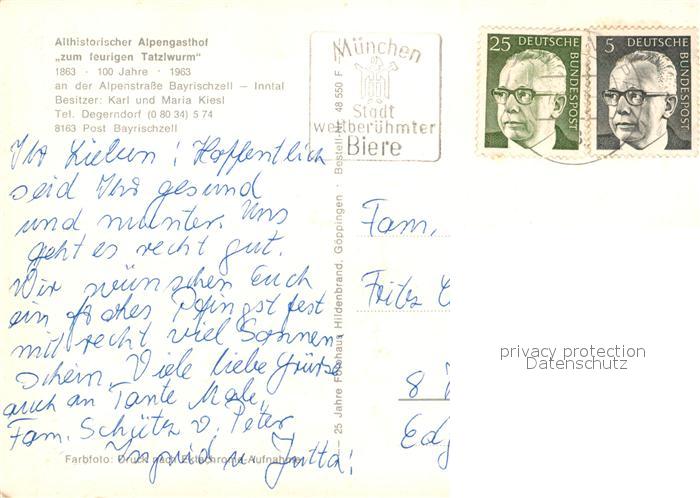 Althistorischer Alpengasthof
„zum feurigen Tatzlwurm"
1863 · 100 Jahre · 1963
an der Alpenstraße Bayrischzell — Inntal
Besitzer: Karl und Maria Kiesl
Tel. Degerndorf (0 80 34) 5 74
8163 Post Bayrischzell
Ihr Lieben! Hoffentlich
seid Ihr gesund
und munter. Uns
geht es recht gut.
Wir wünschen Euch
ein frohes Pfingstfest
mit recht viel Sonnen
schein. Viele liebe Grüße
auch an Tante Male,
Fam. Schütz v. Peter
Ingrid u. Jutta!
Farbfoto: Druck nach Ektachrome-Aufnahme
— 25 Jahre Fotohaus Hildenbrand, Göppingen · Bestell-Nr. 48 550 F
München
Stadt
weltberühmter
Biere
25 DEUTSCHE
BUNDESPOST
5 DEUTSCHE
BUNDESPOST
Fam.
Fritz
8
Edg
privacy protection
Datenschutz